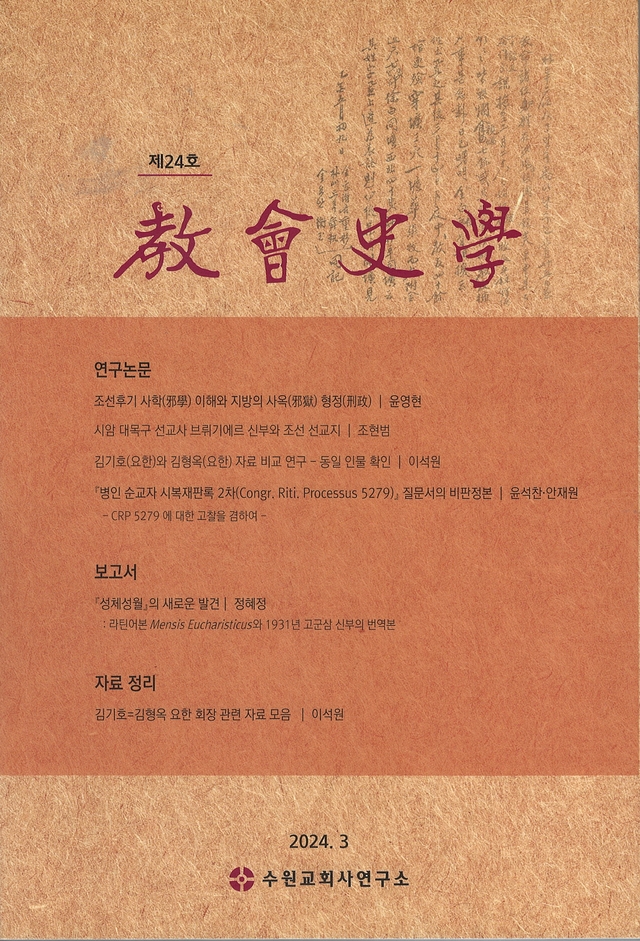 제24호
教會史學
연구논문
조선후기 사학(邪學) 이해와 지방의 사옥(邪獄) 형정(刑政) | 윤영현
시암 대목구 선교사 브뤼기에르 신부와 조선 선교지 | 조현범
김기호(요한)와 김형옥(요한) 자료 비교 연구 – 동일 인물 확인 | 이석원
『병인 순교자 시복재판록 2차(Congr. Riti. Processus 5279)』 질문서의 비판정본 | 윤석찬·안재원
– CRP 5279 에 대한 고찰을 겸하여 –
보고서
『성체성월』의 새로운 발견 | 정혜정
: 라틴어본 Mensis Eucharisticus와 1931년 고군삼 신부의 번역본
자료 정리
김기호=김형옥 요한 회장 관련 자료 모음 | 이석원
2024. 3
수원교회사연구소